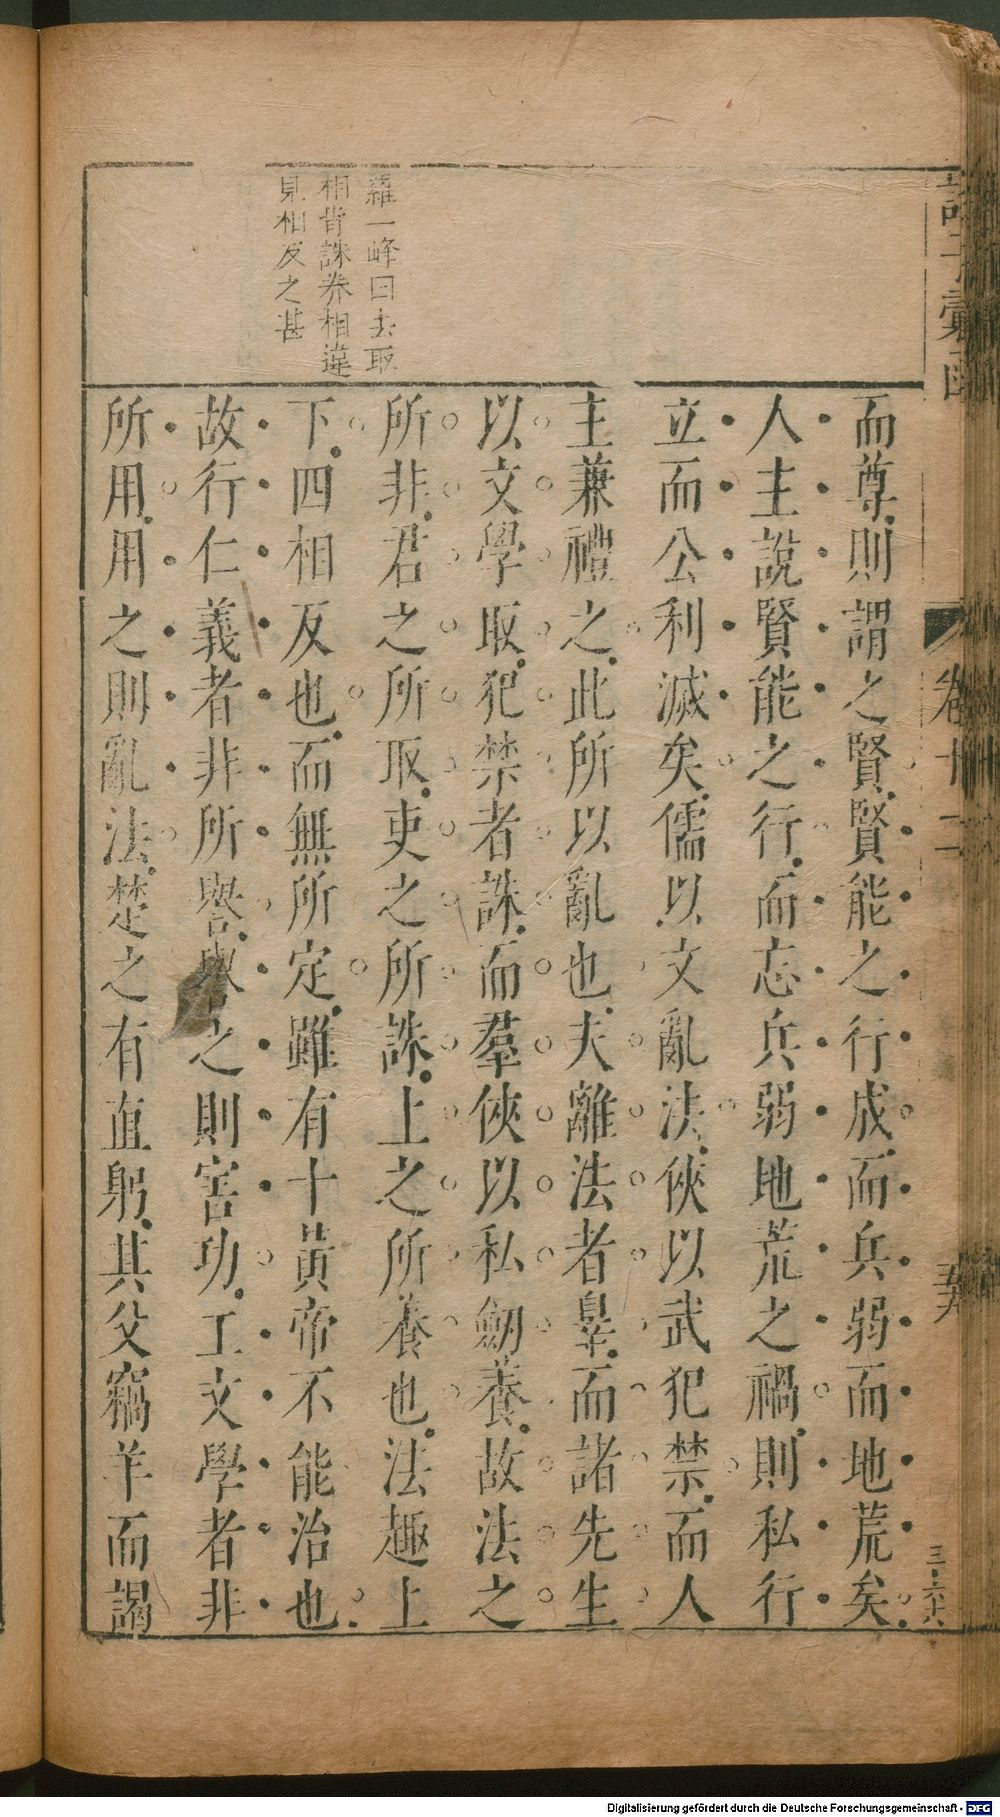 諸子彙函
卷十二
三六六
而尊則謂之賢賢能之行成而兵弱而地荒矣
人主說賢能之行而忘兵弱地荒之禍則私行
立而公利滅矣儒以文亂法俠以武犯禁而人
主兼禮之此所以亂也夫離法者辠而諸先生
以文學取犯禁者誅而羣俠以私劒養故法之
所非君之所取吏之所誅上之所養也法趣上
下四相反也而無所定雖有十黃帝不能治也
故行仁義者非所譽譽之則害功工文學者非
所用用之則亂法楚之有直躬其父竊羊而謁
羅一峰曰去取
相背誅養相違
見相反之甚
Digitalisierung gefördert durch die Deutsche Forschungsgemeinschaft - DFG